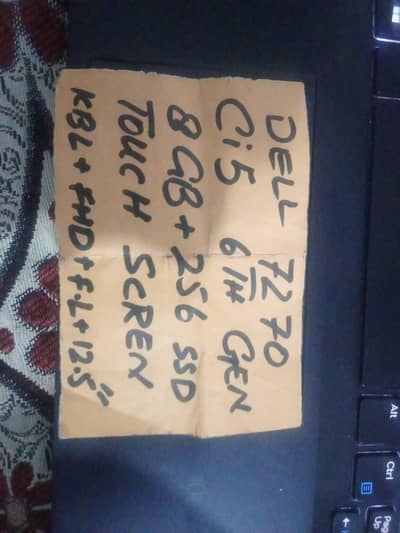 DELL 7270
Ci5 6TH GEN
8GB + 256 SSD
TOUCH SCREN
KBL + FHD + F.L + 12.5"
Alt
Ctrl
Pg Up